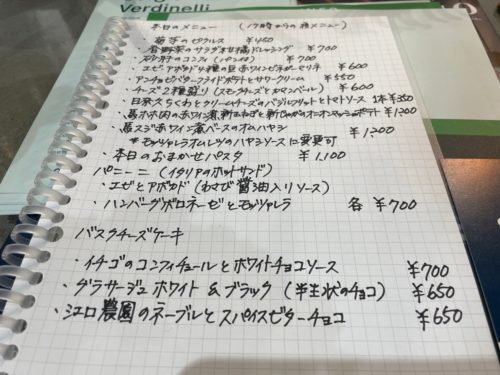 Verdinelli
本日のメニュー (17時からの夜メニュー)
・菊芋のピクルス ¥450
・春野菜のサラダ 柑橘ドレッシング ¥700
・砂肝のコンフィ ¥700
・エビ・アボカド・4種の豆 赤ワインビネガーマリネ ¥600
・アンチョビバターフライドポテトとサワークリーム ¥550
・チーズ2種盛り(スモークチーズとカマンベール) ¥600
・日奈久ちくわとクリームチーズのバジルフリット トマトソース 1本¥350
・馬ホホ肉の赤ワイン煮 新玉ねぎと新じゃがのオニオンマッシュポテト ¥1,200
・馬スジ赤ワイン煮ベースのオムハヤシ ¥1,200
*モッツァレラオムレツのハヤシソースに変更可
・本日のおまかせパスタ ¥1,100
パニーニ(イタリアのホットサンド)
・エビとアボカド(わさび醤油入りソース)
・ハンバーグボロネーゼとモッツァレラ 各 ¥700
バスクチーズケーキ
・イチゴのコンフィチュールとホワイトチョコソース ¥700
・グラサージュ ホワイト & ブラック(半生状のチョコ) ¥650
・シエロ農園のネーブルとスパイスビターチョコ ¥650